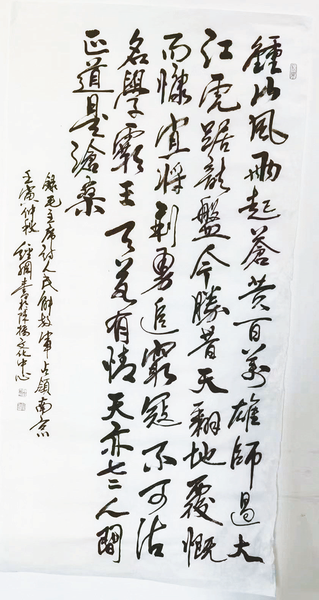 鍾山风雨起蒼黄百萬雄師過大
江虎踞龍盤今勝昔天翻地覆慨
而慷宜將剩勇追窮寇不可沽
名學霸王天若有情天亦老人間
正道是滄桑
錄毛主席詩人民解放軍占領南京
壬寅仲秋 書於 文化中心